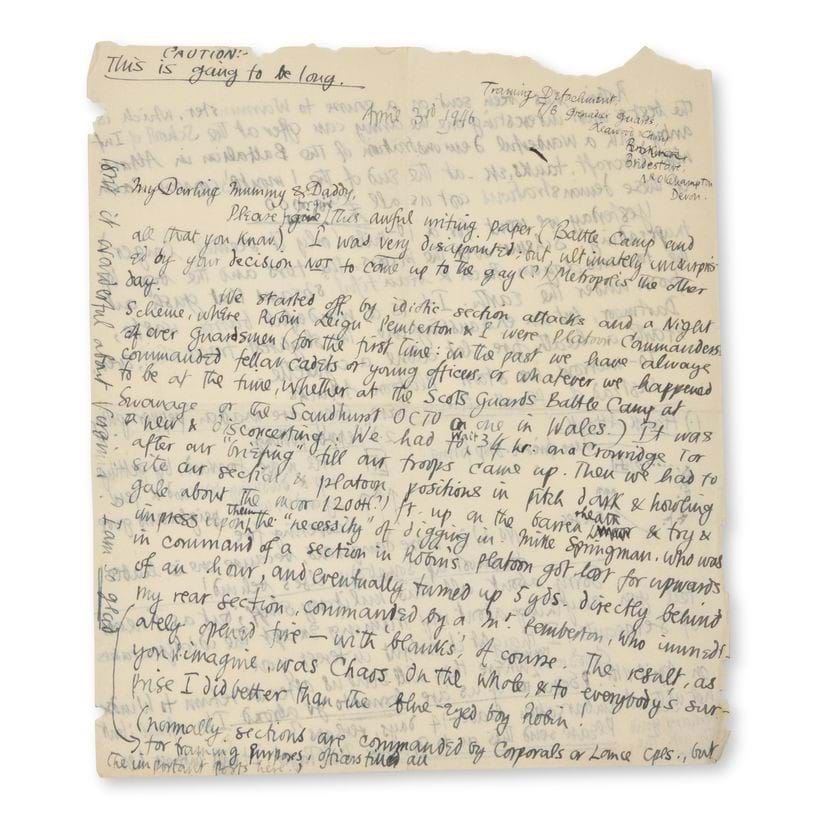 CAUTION:-
This is going to be long.
Training Detachment.
Grenadier Guards.
Bridestowe.
Nr Okehampton
Devon.
April 3rd 1946
My Darling Mummy & Daddy,
Please forgive this awful writing paper (Battle Camp and
all that you know.) I was very disappointed: but ultimately unsurpris-
ed by your decision NOT to come up to the gay (?) Metropolis the other
day.
We started off by idiotic section attacks and a Night
Scheme, where Robin Leigh Pemberton & I were Platoon Commanders
of over Guardsmen (for the first time: in the past we have always
commanded fellow cadets or young officers or whatever we happened
to be at the time, whether at the Scots Guards Battle Camp at
Swanage or the Sandhurst OCTU one in Wales.) It was
a new & disconcerting. We had to wait 3/4 hr. on a Tor
after our "briefing" till our troops came up. Then we had to
site our section & platoon positions in pitch dark & howling
gale about the moor 1200 (?) ft. up on the barren heath & try &
impress upon them the "necessity" of digging in. Mike Springman, who was
in command of a section in Robins platoon got lost for upwards
of an hour, and eventually turned up 5 yds. directly behind
my rear section, commanded by a Mr Pemberton, who immedi-
ately opened fire — with 'blanks', of course. The result, as
you'll imagine, was Chaos. On the whole & to everybody's sur-
prise I did better than the blue-eyed boy Robin!
(normally sections are commanded by Corporals or Lance Cpls., but
for training purposes, officers filled all
the important posts here.)
Isn't it wonderful about Virginia? I am so glad